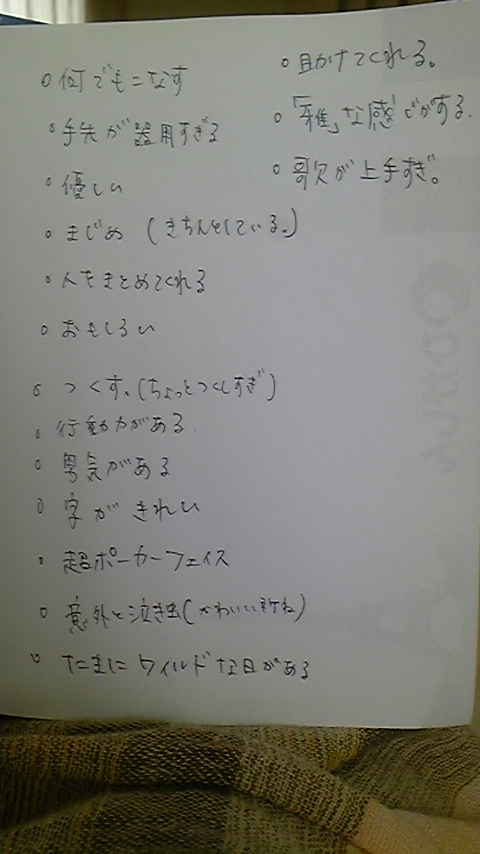 ○何でもこなす
○手先が器用すぎる
○優しい
○まじめ (きちんとしている。)
○人をまとめてくれる
○おもしろい
○つくす。(ちょっとつくしすぎ)
○行動力がある
○男気がある
○字がきれい
○超ポーカーフェイス
○意外と泣き虫(かわいい所ね)
○たまにワイルドな日がある
○助けてくれる。
○「雅」な感じがする。
○歌が上手すぎ。